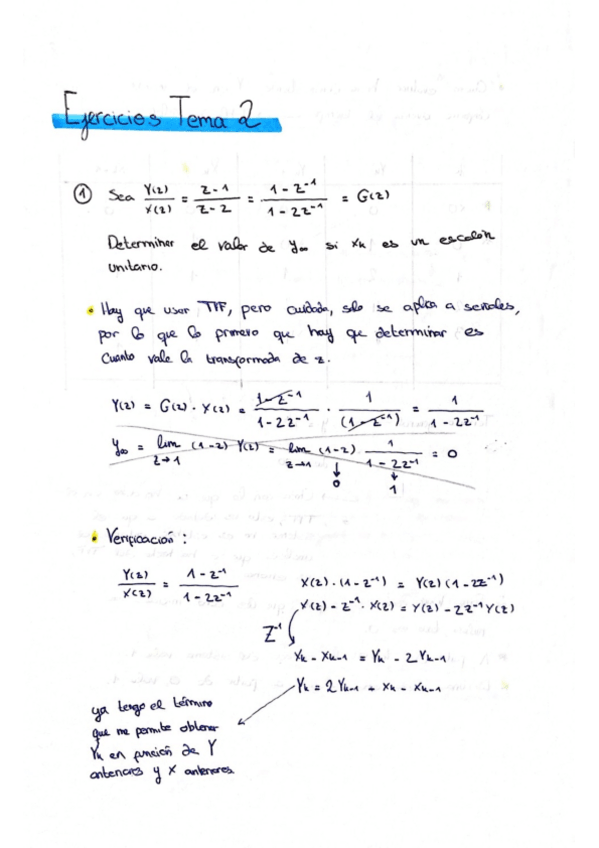 Ejercicios Tema 2
① Sea Y(z)/X(z) = z-1/z-2 = 1-z⁻¹/1-2z⁻¹ = G(z)
Determinar el valor de y∞ si xk es un escalón
unitario.
• Hay que usar TVF, pero cuidado, solo se aplica a señales,
por lo que lo primero que hay que determinar es
cuanto vale la transformada de z.
Y(z) = G(z) · X(z) = 1-z⁻¹/1-2z⁻¹ · 1/(1-z⁻¹) = 1/1-2z⁻¹
y∞ = lim z→1 (1-z) Y(z) = lim z→1 (1-z) 1/1-2z⁻¹ = 0
↓ 0 ↓ 1
• Verificación:
Y(z)/X(z) = 1-z⁻¹/1-2z⁻¹ X(z)·(1-z⁻¹) = Y(z)(1-2z⁻¹)
X(z) - z⁻¹·X(z) = Y(z) - 2z⁻¹Y(z)
Z⁻¹
Xk - Xk-1 = Yk - 2Yk-1
Yk = 2Yk-1 + Xk - Xk-1
ya tengo el término
que me permite obtener
Yk en función de Y
anteriores y X anteriores